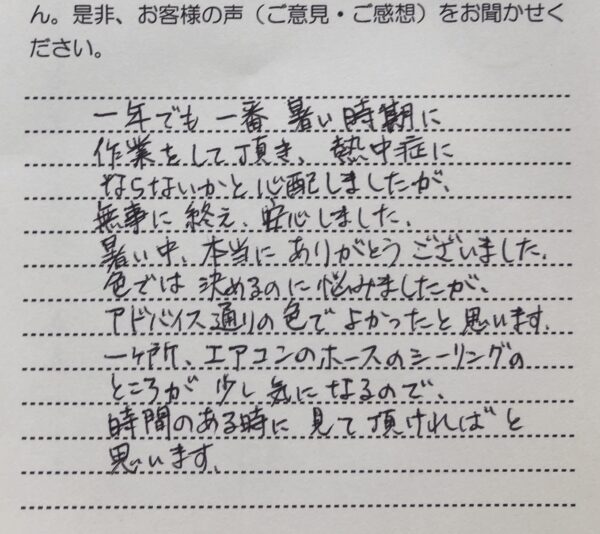 ん。是非、お客様の声（ご意見・ご感想）をお聞かせく
ださい。
一年でも一番暑い時期に
作業をして頂き、熱中症に
ならないかと心配しましたが、
無事に終え、安心しました。
暑い中、本当にありがとうございました。
色では決めるのに悩みましたが、
アドバイス通りの色でよかったと思います。
一ヶ所、エアコンのホースのシーリングの
ところが少し気になるので、
時間のある時に見て頂ければと
思います。